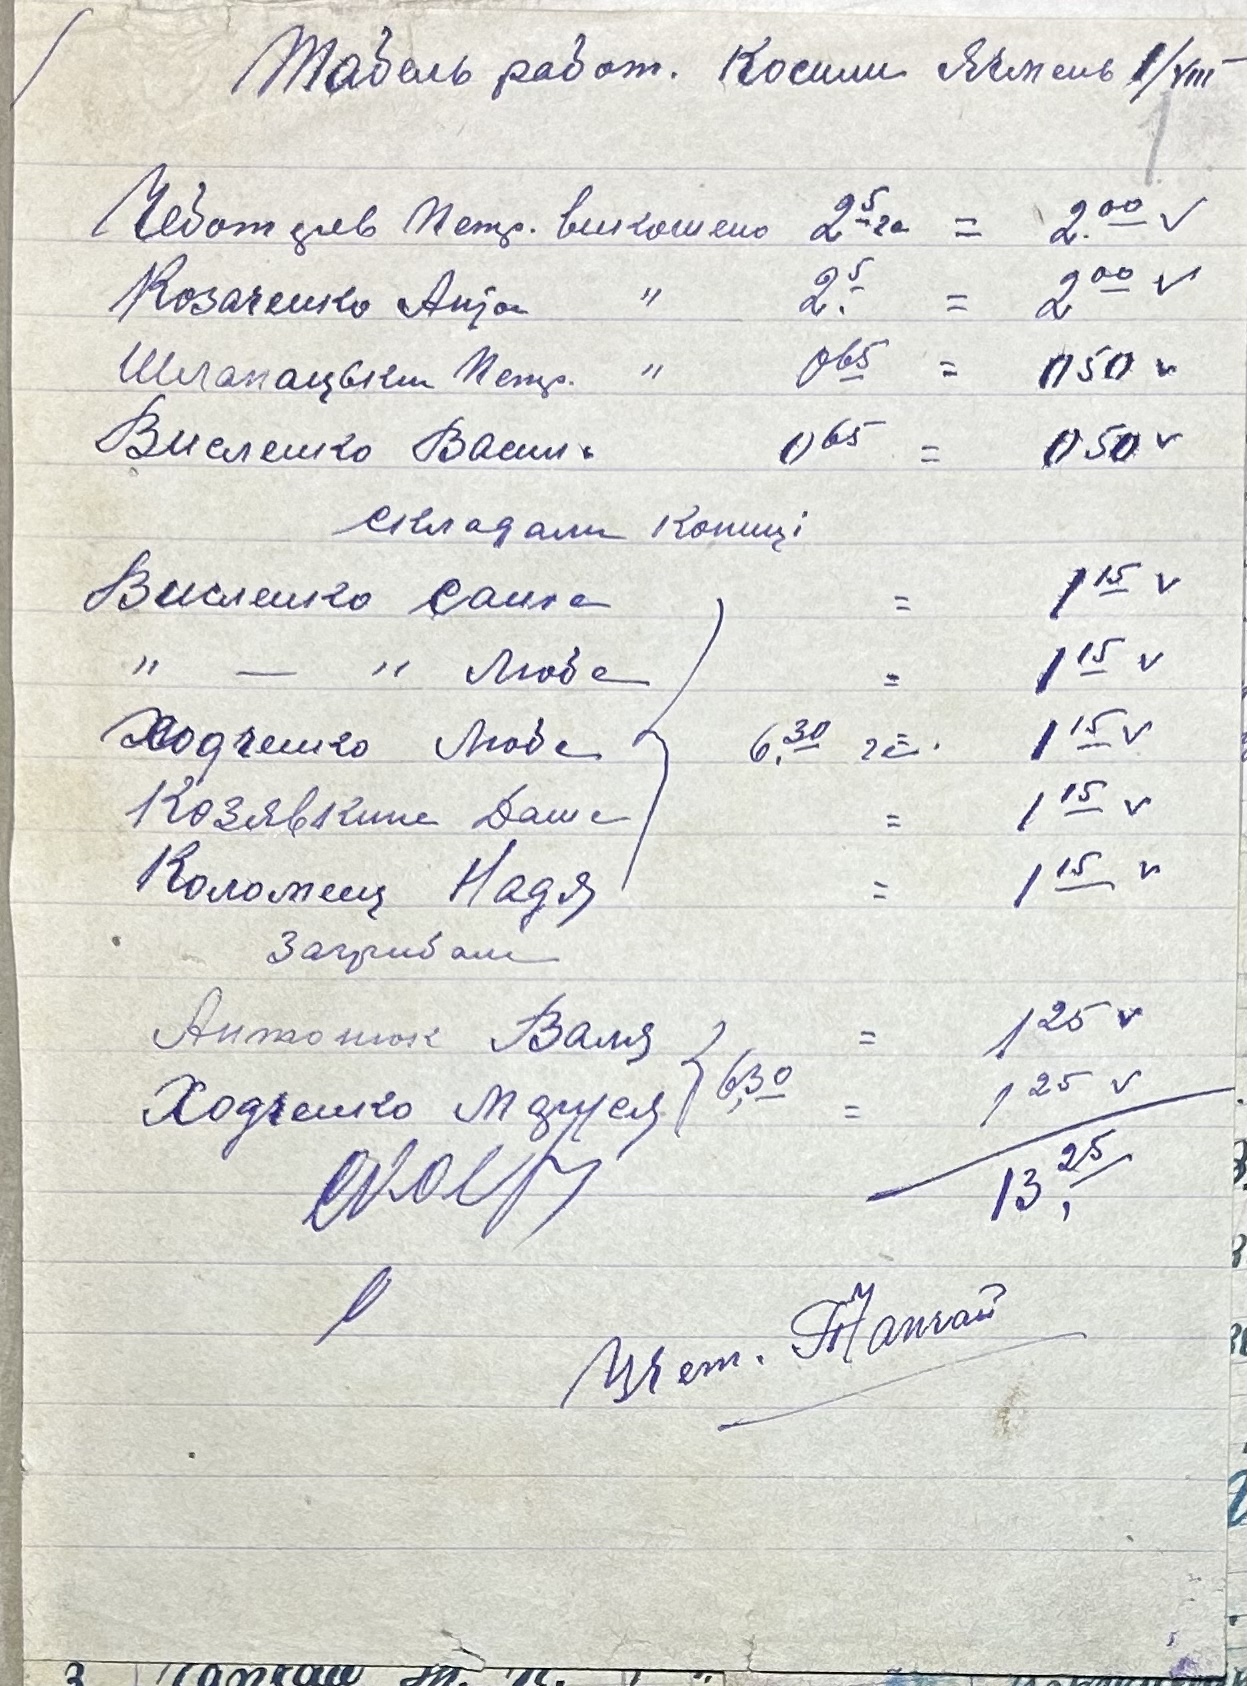 Табель работ. Косили Ячмень 1/VIII
1
Чеботарев Петр. викошено 2,5 га = 2.00 v
Козаченко " 2.5 = 2 00 v
Шлапацьки Петр. " 0 65 = 0 50 v
Висленко Васил. 0 65 = 0 50 v
складали копиці
Висленко Санка = 1 15 v
" — " Люба = 1 15 v
Ходченко Люба 6,30 га = 1 15 v
Козявкина Даша = 1 15 v
Коломиец Надя = 1 15 v
Загрибали
Антонюк Валя = 1 25 v
Ходченко Маруся 6,30 = 1 25 v
13,25
Учет. Тапчай
3